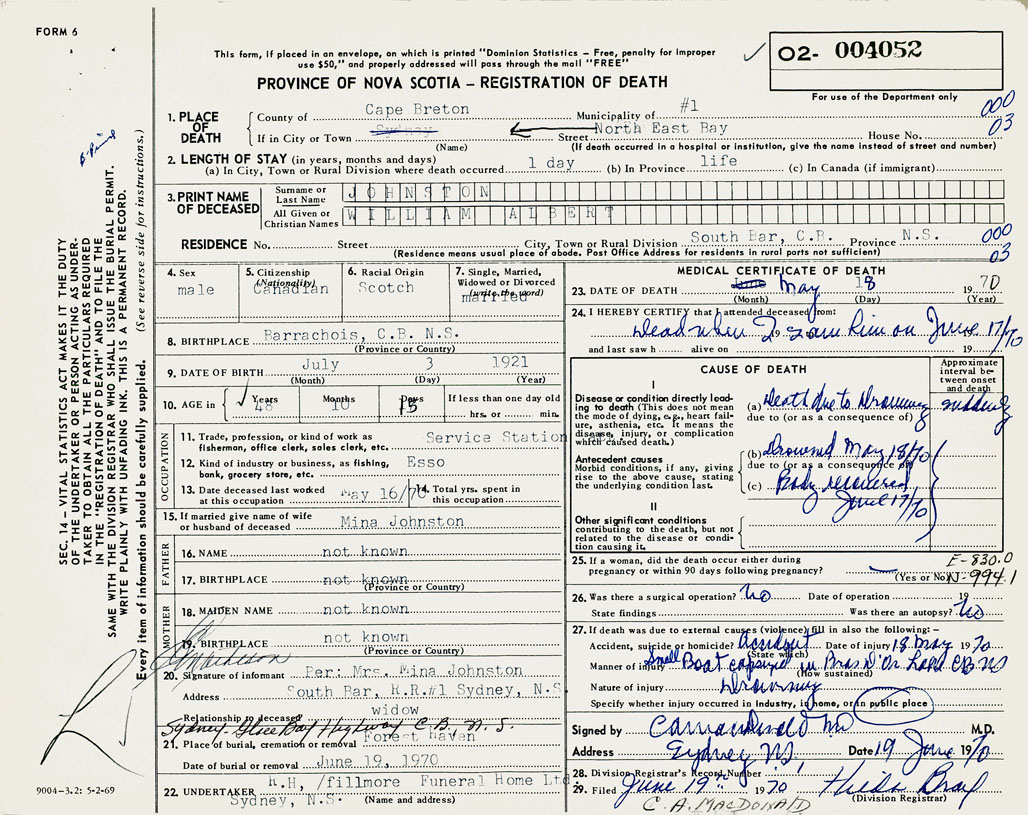 FORM 6
This form, if placed in an envelope, on which is printed "Dominion Statistics – Free, penalty for improper
use $50," and properly addressed will pass through the mail "FREE"
PROVINCE OF NOVA SCOTIA – REGISTRATION OF DEATH
✓ O2- 004052
For use of the Department only
000
03
1. PLACE OF DEATH
County of Cape Breton Municipality of #1
If in City or Town Sydney Street North East Bay House No.
(Name) (If death occurred in a hospital or institution, give the name instead of street and number)
2. LENGTH OF STAY (in years, months and days)
(a) In City, Town or Rural Division where death occurred 1 day (b) In Province life (c) In Canada (if immigrant)
3. PRINT NAME OF DECEASED
Surname or Last Name JOHNSTON
All Given or Christian Names WILLIAM ALBERT
RESIDENCE No. Street City, Town or Rural Division South Bar, C.B. Province N.S.
(Residence means usual place of abode. Post Office Address for residents in rural parts not sufficient)
000
03
4. Sex male
5. Citizenship (Nationality) Canadian
6. Racial Origin Scotch
7. Single, Married, Widowed or Divorced (write the word) married
8. BIRTHPLACE Barrachois, C.B. N.S.
(Province or Country)
9. DATE OF BIRTH July 3 1921
(Month) (Day) (Year)
10. AGE in ✓ Years 48 Months 10 Days 15 If less than one day old hrs. or min.
OCCUPATION
11. Trade, profession, or kind of work as fisherman, office clerk, sales clerk, etc. Service Station
12. Kind of industry or business, as fishing, bank, grocery store, etc. Esso
13. Date deceased last worked at this occupation May 16/70 14. Total yrs. spent in this occupation
15. If married give name of wife or husband of deceased Mina Johnston
FATHER
16. NAME not known
17. BIRTHPLACE not known
(Province or Country)
MOTHER
18. MAIDEN NAME not known
19. BIRTHPLACE not known
(Province or Country)
20. Signature of informant Per: Mrs. Mina Johnston
Address South Bar, R.R.#1 Sydney, N.S
Relationship to deceased widow
Sydney-Glace Bay Highway C.B., N.S.
21. Place of burial, cremation or removal Forest Haven
Date of burial or removal June 19, 1970
22. UNDERTAKER R.H, /fillmore Funeral Home Ltd
Sydney, N.S. (Name and address)
MEDICAL CERTIFICATE OF DEATH
23. DATE OF DEATH June May 18 1970
(Month) (Day) (Year)
24. I HEREBY CERTIFY that I attended deceased from:
Dead when I saw him on June 17/70
19
and last saw h alive on 19
CAUSE OF DEATH
Approximate interval between onset and death
I
Disease or condition directly leading to death (This does not mean the mode of dying, e.g., heart failure, asthenia, etc. It means the disease, injury, or complication which caused death.)
(a) Death due to Drowning suddenly
due to (or as a consequence of)
Antecedent causes
Morbid conditions, if any, giving rise to the above cause, stating the underlying condition last.
(b) Drowned May 18/70
due to (or as a consequence of)
(c) Body recovered
June 17/70
II
Other significant conditions contributing to the death, but not related to the disease or condition causing it.
25. If a woman, did the death occur either during pregnancy or within 90 days following pregnancy? (Yes or No)
E-830.0
N-994.1
26. Was there a surgical operation? No Date of operation 19
State findings Was there an autopsy? No
27. If death was due to external causes (violence) fill in also the following:–
Accident, suicide or homicide? Accident Date of injury 18 May 1970
(State which)
Manner of injury Small Boat capsized in Bras D'Or Lake CB NS
(How sustained)
Nature of injury Drowning
Specify whether injury occurred in industry, in home, or in public place
Signed by M.D.
Address Sydney NS, Date 19 June 1970
28. Division Registrar's Record Number
29. Filed June 19th 1970
(Division Registrar)
C. A. MACDONALD
SEC. 14 – VITAL STATISTICS ACT MAKES IT THE DUTY
OF THE UNDERTAKER OR PERSON ACTING AS UNDERTAKER
TO OBTAIN ALL THE PARTICULARS REQUIRED
IN THE "REGISTRATION OF DEATH" AND TO FILE THE
SAME WITH THE DIVISION REGISTRAR WHO SHALL ISSUE THE BURIAL PERMIT.
WRITE PLAINLY WITH UNFADING INK. THIS IS A PERMANENT RECORD.
Every item of information should be carefully supplied. (See reverse side for instructions.)
9004-3.2: 5-2-69